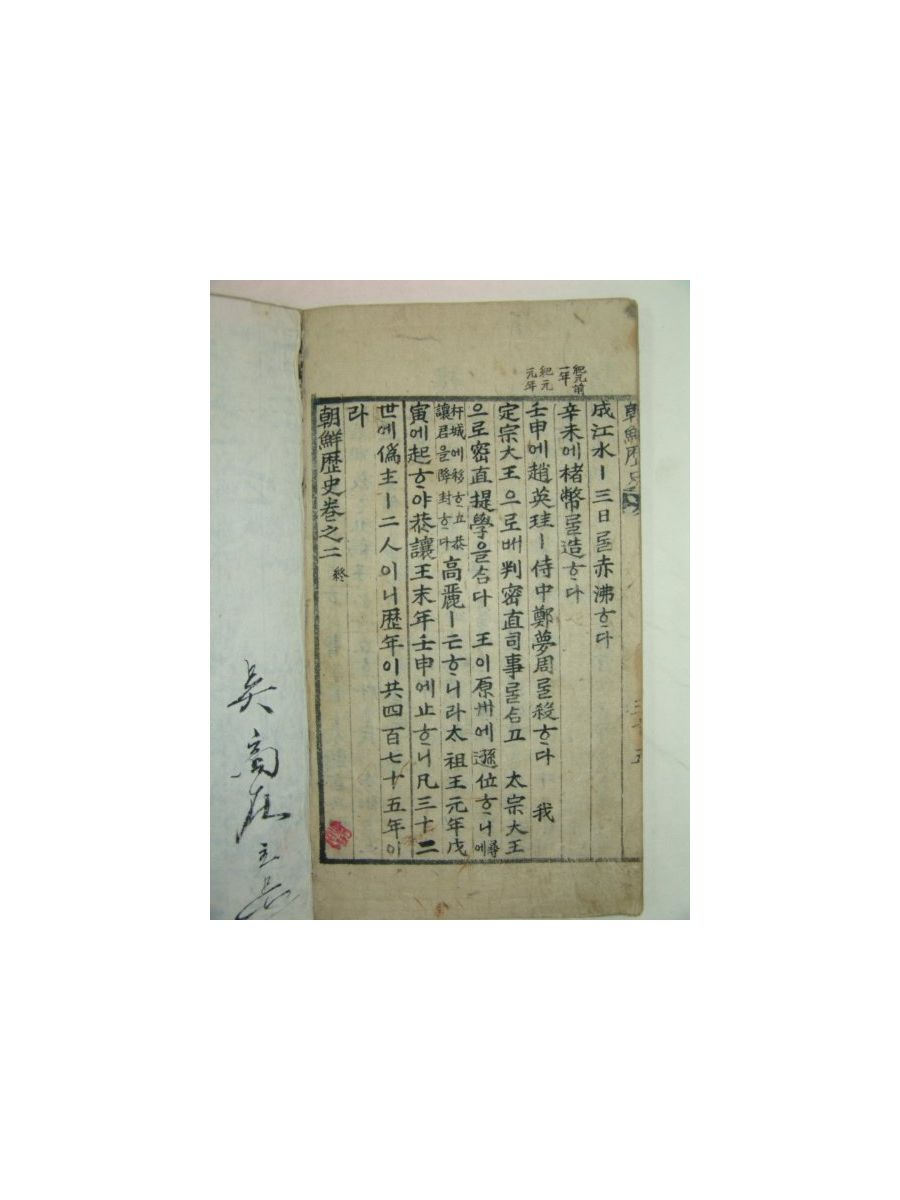 朝鮮歷史
紀元前
一年
紀元
元年
成江水ㅣ三日을赤沸ᄒᆞ다
辛未에楮幣ᄅᆞᆯ造ᄒᆞ다
壬申에趙英珪ㅣ侍中鄭夢周ᄅᆞᆯ殺ᄒᆞ다 我
定宗大王으로ᄡᅥ判密直司事ᄅᆞᆯ合고 太宗大王
으로密直提學을合다 王이原州에遜位ᄒᆞ니尋에
杆城에移ᄒᆞ고恭
讓君을降封ᄒᆞ다
高麗ㅣ亡ᄒᆞ니라太祖王元年戊
寅에起ᄒᆞ야恭讓王末年壬申에止ᄒᆞ니凡三十二
世에僞主ㅣ二人이니歷年이共四百七十五年이
라
朝鮮歷史卷之二 終
吳